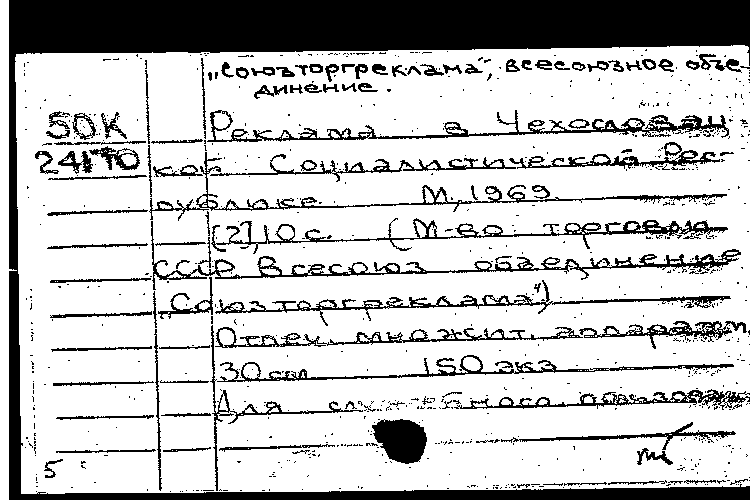 „Союзторгреклама", всесоюзное объе-
динение.
50К Реклама в Чехословац-
24170 кой Социалистической Рес-
публике М., 1969.
[2], 10 с. (М-во торговли
СССР Всесоюз объединение
„Союзторгреклама")
Отпеч. множит. аппарат.
30 стл 150 экз
Для служебного пользован
5